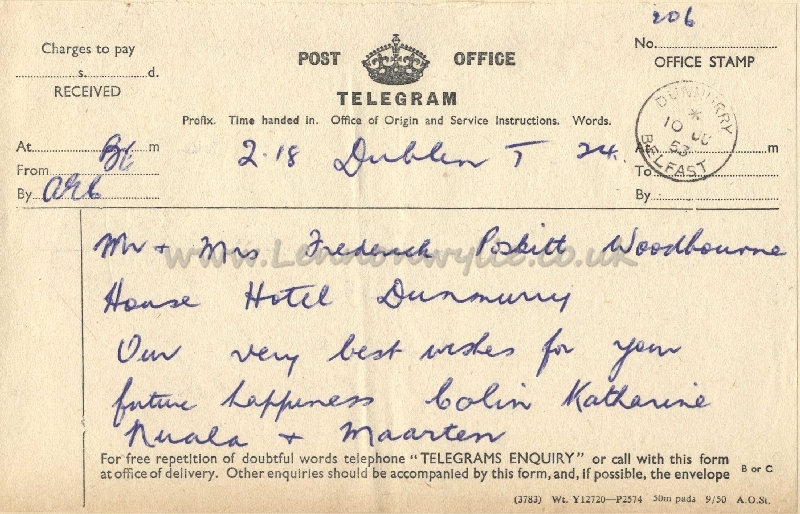 206
Charges to pay
s. d.
RECEIVED
POST OFFICE
TELEGRAM
No.
OFFICE STAMP
Prefix. Time handed in. Office of Origin and Service Instructions. Words.
DUNMURRY
*
10
53
BELFAST
At Bt m
From
By
2.18 Dublin T 24.
At m
To
By
Mr + Mrs Frederick Poskitt Woodbourne
www.Lennonwylie.co.uk
House Hotel Dunmurry
Our very best wishes for your
future happiness Colin Katharine
Nuala + Maarten
For free repetition of doubtful words telephone "TELEGRAMS ENQUIRY" or call with this form
at office of delivery. Other enquiries should be accompanied by this form, and, if possible, the envelope
B or C
(3783) Wt. Y12720—P2574 50m pads 9/50 A.O.St.